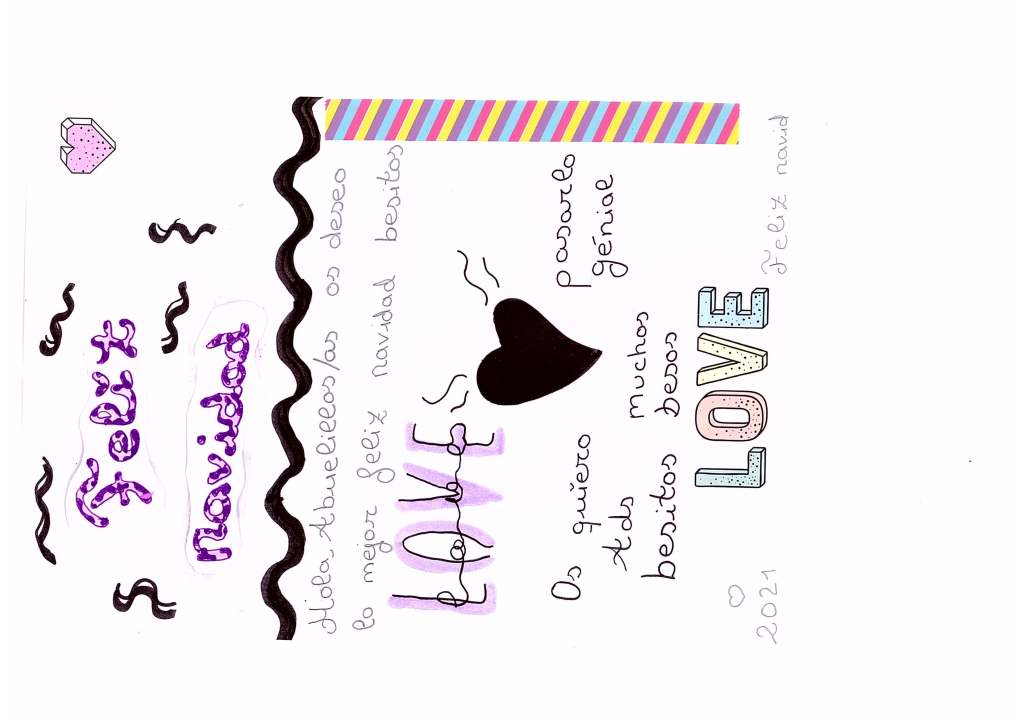 Feliz
navidad
Hola, Abuelillos/as os deseo
lo mejor feliz navidad besitos
LOVE
Os quiero pasarlo
génial
Ads muchos
besitos besos
LOVE
2021 Feliz navid